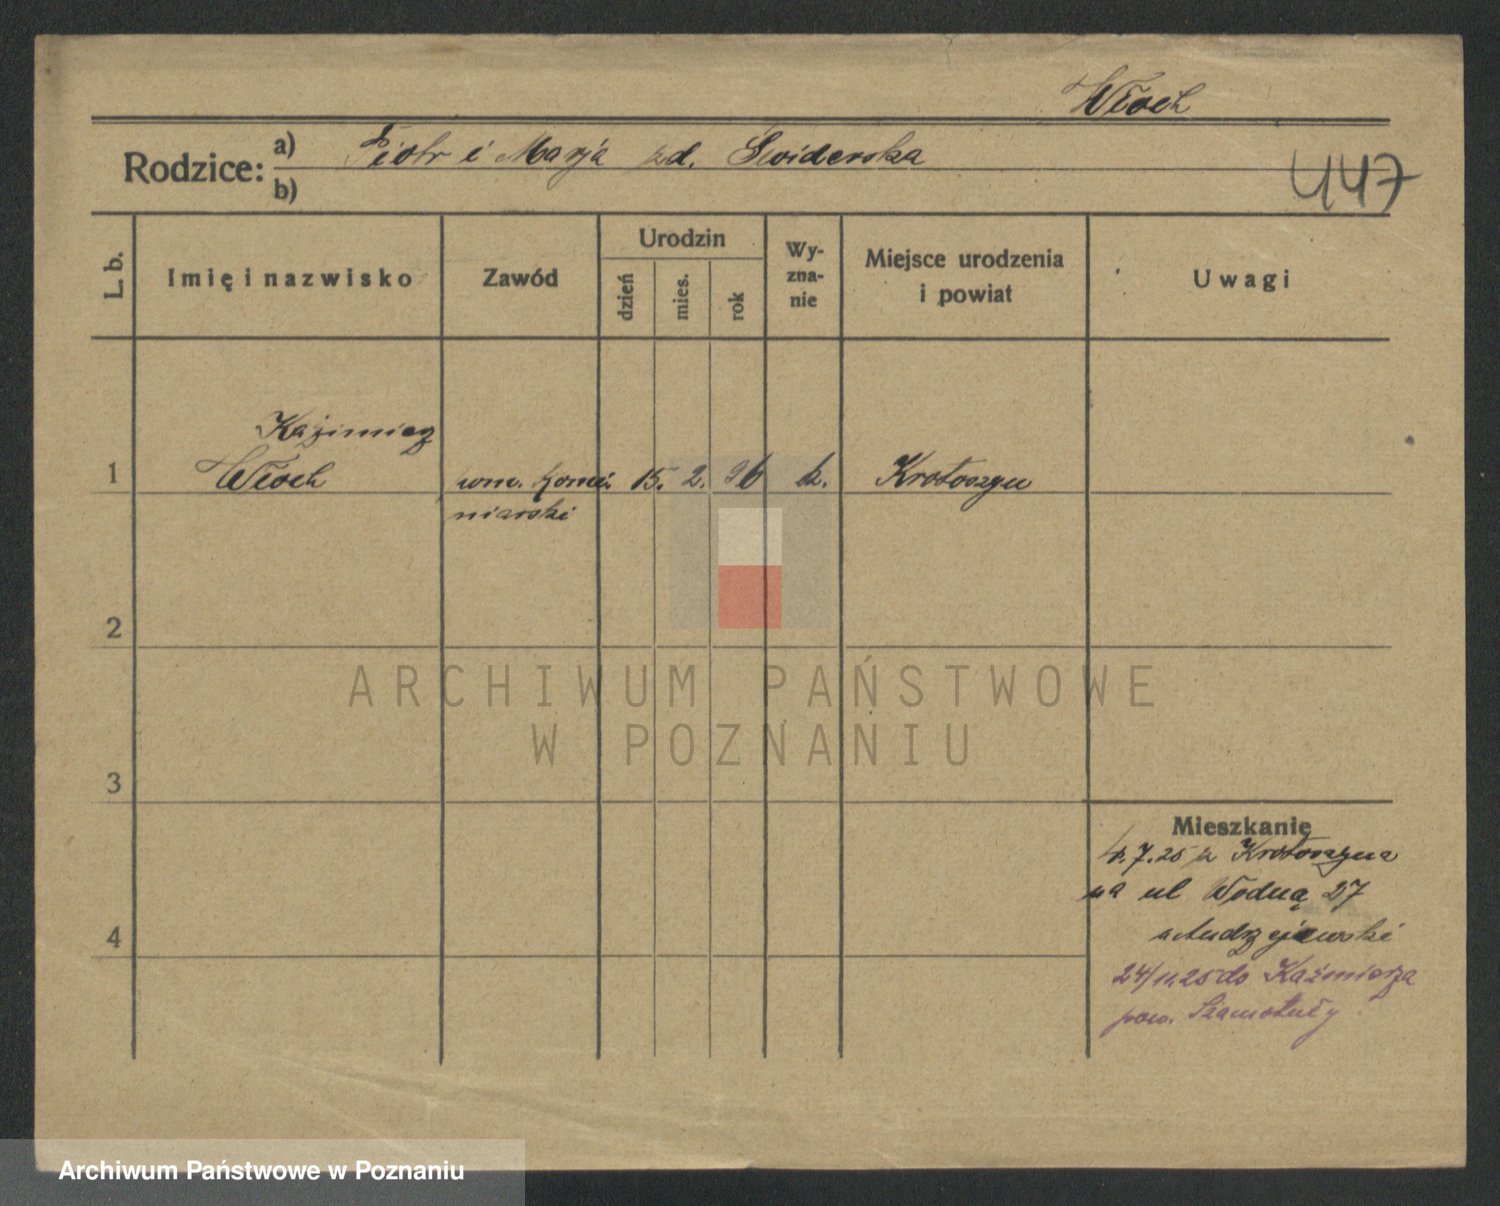 Włoch
Rodzice: a) Piotr i Marja zd. Świderska
b)
447
L. b.
Imię i nazwisko
Zawód
Urodzin
dzień
mies.
rok
Wy-
zna-
nie
Miejsce urodzenia
i powiat
Uwagi
Kaźimierz
1 Włoch
ucze. komi- 15. 2. 06 k. Krotoszyn
niarski
2
3
4
ARCHIWUM PAŃSTWOWE
W POZNANIU
Mieszkanie
.7.25 z Krotoszyna
na ul Wodną 27
Andrzejewski
24/11.25 do Kaźmierza
pow. Szamotuły
Archiwum Państwowe w Poznaniu